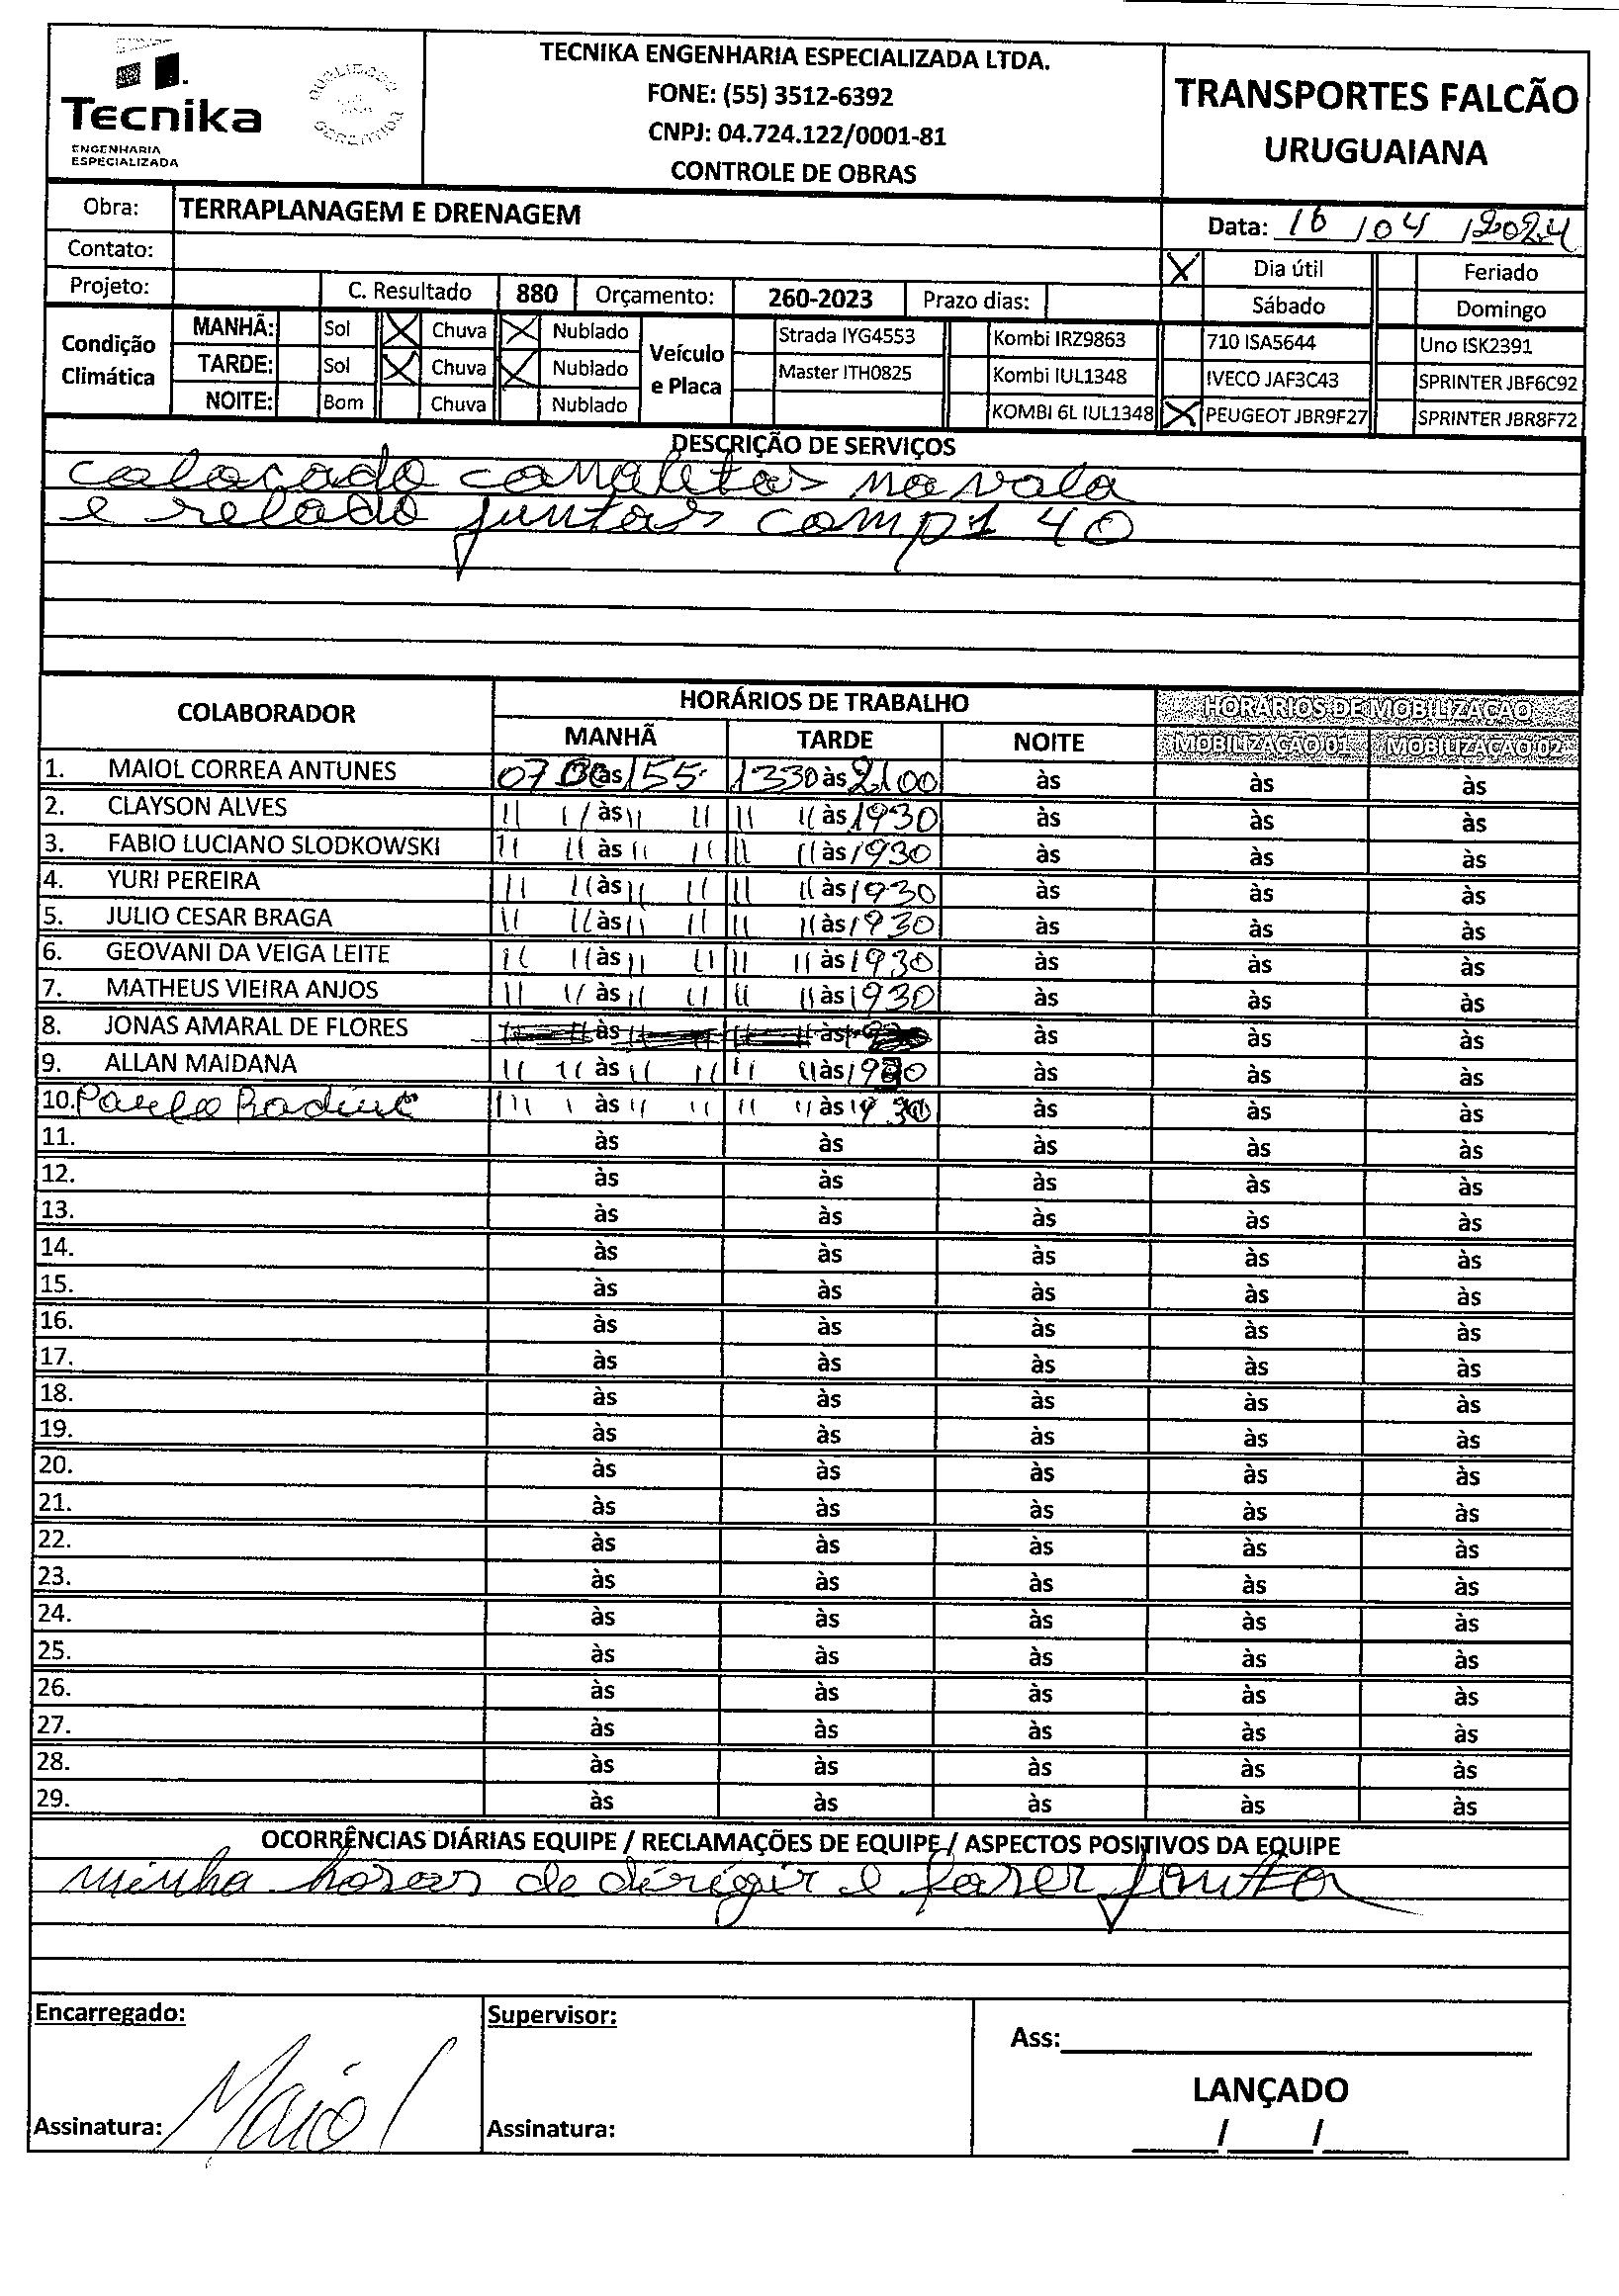 Tecnika
ENGENHARIA
ESPECIALIZADA
TECNIKA ENGENHARIA ESPECIALIZADA LTDA.
FONE: (55) 3512-6392
CNPJ: 04.724.122/0001-81
CONTROLE DE OBRAS
TRANSPORTES FALCÃO
URUGUAIANA
Obra: TERRAPLANAGEM E DRENAGEM
Data: 16/04/2024
Contato:
X Dia útil Feriado
Projeto: C. Resultado 880 Orçamento: 260-2023 Prazo dias:
Sábado Domingo
Condição Climática
MANHÃ: Sol X Chuva X Nublado
TARDE: Sol X Chuva X Nublado
NOITE: Bom Chuva Nublado
Veículo e Placa
Strada IYG4553 Kombi IRZ9863 710 ISA5644 Uno ISK2391
Master ITH0825 Kombi IUL1348 IVECO JAF3C43 SPRINTER JBF6C92
KOMBI 6L IUL1348 X PEUGEOT JBR9F27 SPRINTER JBR8F72
DESCRIÇÃO DE SERVIÇOS
colocado canaletas na vala
e relado juntas comp1 40
COLABORADOR HORÁRIOS DE TRABALHO HORÁRIOS DE MOBILIZAÇÃO
MANHÃ TARDE NOITE MOBILIZAÇÃO 01 MOBILIZAÇÃO 02
1. MAIOL CORREA ANTUNES 07 às 155 1330 às 2100 às às às
2. CLAYSON ALVES " " às " " " " às 1930 às às às
3. FABIO LUCIANO SLODKOWSKI " " às " " " " às 1930 às às às
4. YURI PEREIRA " " às " " " " às 1930 às às às
5. JULIO CESAR BRAGA " " às " " " " às 1930 às às às
6. GEOVANI DA VEIGA LEITE " " às " " " " às 1930 às às às
7. MATHEUS VIEIRA ANJOS " " às " " " " às 1930 às às às
8. JONAS AMARAL DE FLORES às às às às às
9. ALLAN MAIDANA " " às " " " " às 1930 às às às
10. Paulo " " às " " " " às 1930 às às às
11. às às às às às
12. às às às às às
13. às às às às às
14. às às às às às
15. às às às às às
16. às às às às às
17. às às às às às
18. às às às às às
19. às às às às às
20. às às às às às
21. às às às às às
22. às às às às às
23. às às às às às
24. às às às às às
25. às às às às às
26. às às às às às
27. às às às às às
28. às às às às às
29. às às às às às
OCORRÊNCIAS DIÁRIAS EQUIPE / RECLAMAÇÕES DE EQUIPE / ASPECTOS POSITIVOS DA EQUIPE
minha horas de dirigir e fazer janta
Encarregado: Supervisor:
Ass:
LANÇADO
Assinatura: Maiol Assinatura:
/ /